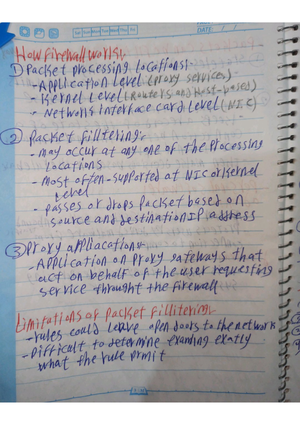 How Firewall work:-
① Packet processing locations:-
- Application Level (Proxy services)
- Kernel Level (Routers and Host-based)
- Network Interface card Level (NIC)
② Packet filltering:-
- may occur at any one of the Processing
locations
- most often-supported at NIC or Kernel
Level
- passes or drops Packet based on
source and destination IP address
③ Proxy applocation:-
- Application on proxy gateways that
act on behalf of the user requesting
service throught the firewall
Limitations of Packet fillitering:-
- rules could leave open doors to the network
- Difficult to determine exactly
what the rule prmit